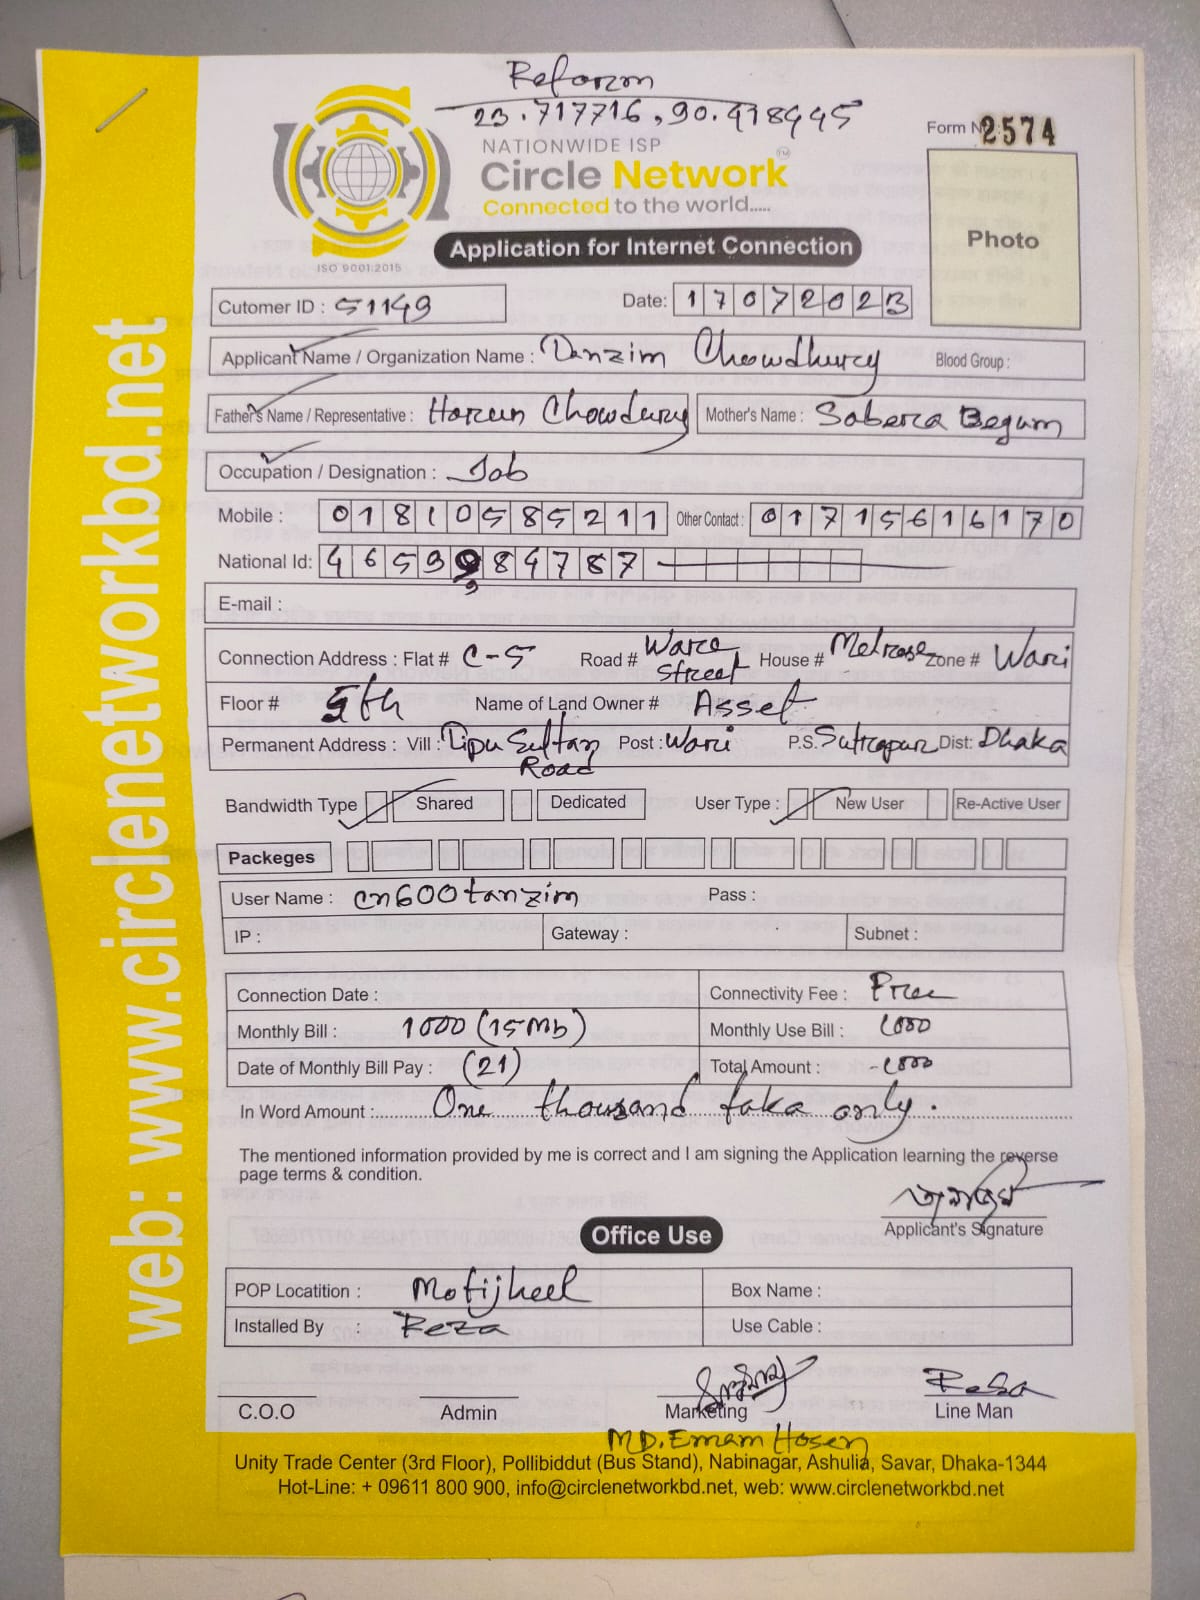 Reform
23.717716, 90.418445
NATIONWIDE ISP
Circle Network TM
Connected to the world.....
ISO 9001:2015
Application for Internet Connection
Form No: 2574
Photo
web: www.circlenetworkbd.net
Cutomer ID : 51149 Date: 17072023
Applicant Name / Organization Name : Tanzim Chowdhury Blood Group :
Father's Name / Representative : Harun Chowdury Mother's Name : Sabera Begum
Occupation / Designation : Job
Mobile : 01810585211 Other Contact : 01715616170
National Id: 4659984787
E-mail :
Connection Address : Flat # C-5 Road # Ware Street House # Melrose Zone # Wari
Floor # 5th Name of Land Owner # Asset
Permanent Address : Vill : Tipu Sultan Road Post : Wari P.S. Sutrapur Dist: Dhaka
Bandwidth Type Shared Dedicated User Type : New User Re-Active User
Packeges
User Name : cn600tanzim Pass :
IP : Gateway : Subnet :
Connection Date : Connectivity Fee : Free
Monthly Bill : 1000 (15Mb) Monthly Use Bill : 1000
Date of Monthly Bill Pay : (21) Total Amount : -1000
In Word Amount : One thousand taka only.
The mentioned information provided by me is correct and I am signing the Application learning the reverse
page terms & condition.
Applicant's Signature
Office Use
POP Locatition : Motijheel Box Name :
Installed By : Reza Use Cable :
C.O.O Admin Marketing Line Man
MD. Emam Hosen
Unity Trade Center (3rd Floor), Pollibiddut (Bus Stand), Nabinagar, Ashulia, Savar, Dhaka-1344
Hot-Line: + 09611 800 900, info@circlenetworkbd.net, web: www.circlenetworkbd.net